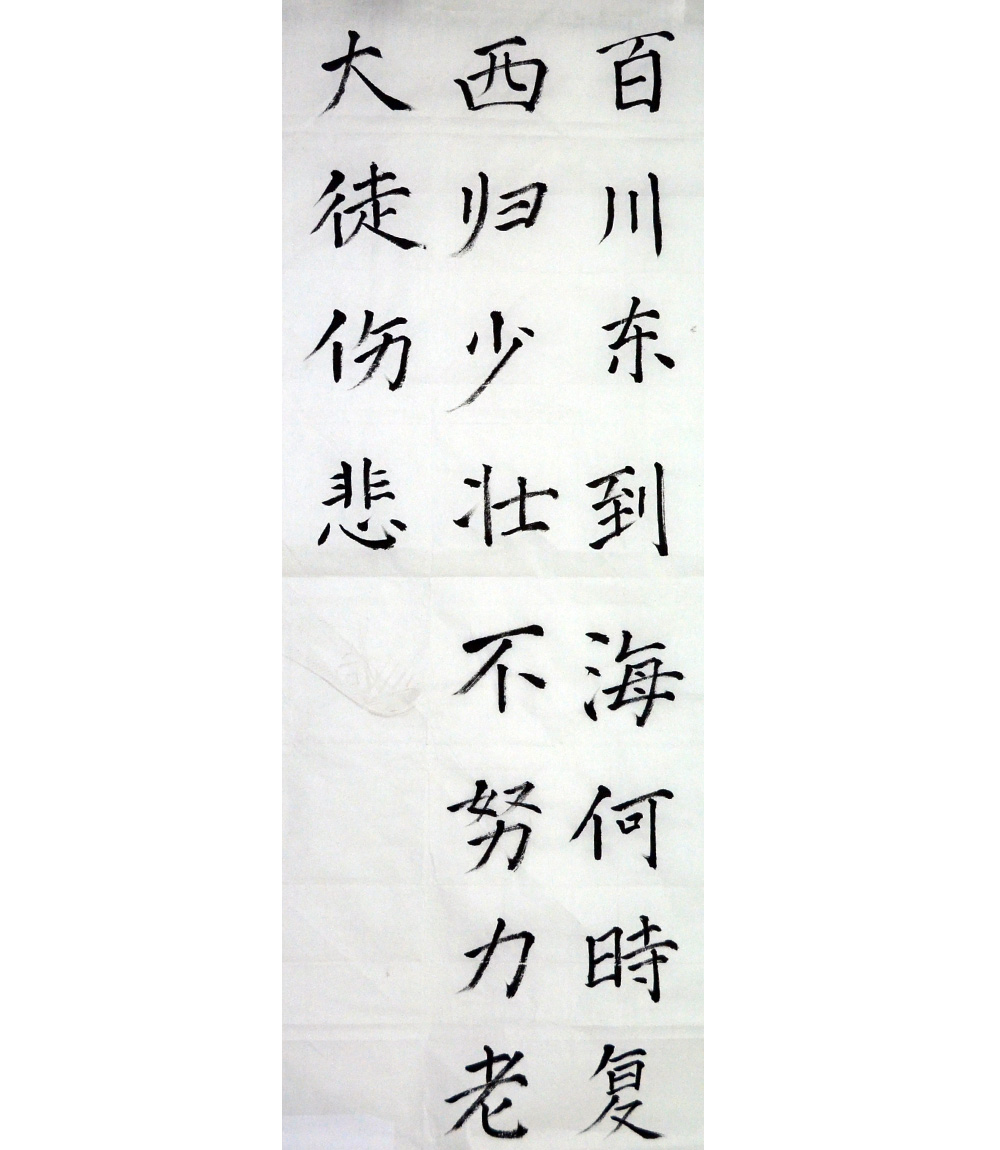 百川东到海何時复
西归少壮不努力老
大徒伤悲